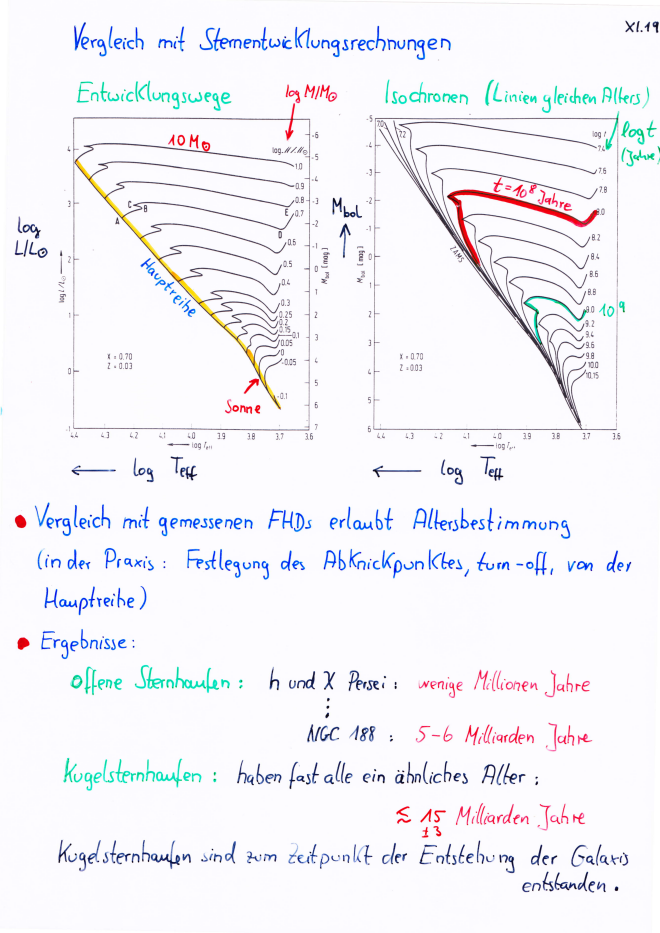 XI.19
Vergleich mit Sternentwicklungsrechnungen
Entwicklungswege
log M/M☉
Isochronen (Linien gleichen Alters)
log t
(Jahre)
10 M☉
log M/M☉
1.0
0.9
0.8
0.7
0.6
0.5
0.4
0.3
0.25
0.2
0.15
0.1
0.05
0
-0.05
-0.1
A
B
C
D
E
Hauptreihe
Sonne
X = 0.70
Z = 0.03
log L/L☉
log L/L☉
4
3
2
1
0
-1
-6
-5
-4
-3
-2
-1
0
1
2
3
4
5
6
7
M bol [mag]
4.4 4.3 4.2 4.1 4.0 3.9 3.8 3.7 3.6
log T eff
← log Teff
Mbol
M bol [mag]
-5
-4
-3
-2
-1
0
1
2
3
4
5
6
7.0
7.2
log t
7.4
7.6
7.8
8.0
8.2
8.4
8.6
8.8
9.0
9.2
9.4
9.6
9.8
10.0
10.15
t = 10⁸ Jahre
10⁹
ZAMS
X = 0.70
Z = 0.03
4.4 4.3 4.2 4.1 4.0 3.9 3.8 3.7 3.6
log T eff
← log Teff
• Vergleich mit gemessenen FHDs erlaubt Altersbestimmung
(in der Praxis: Festlegung des Abknickpunktes, turn-off, von der
Hauptreihe)
• Ergebnisse:
Offene Sternhaufen: h und χ Persei: wenige Millionen Jahre
⋮
NGC 188: 5-6 Milliarden Jahre
Kugelsternhaufen: haben fast alle ein ähnliches Alter:
≲ 15 Milliarden Jahre
±3
Kugelsternhaufen sind zum Zeitpunkt der Entstehung der Galaxis
entstanden.